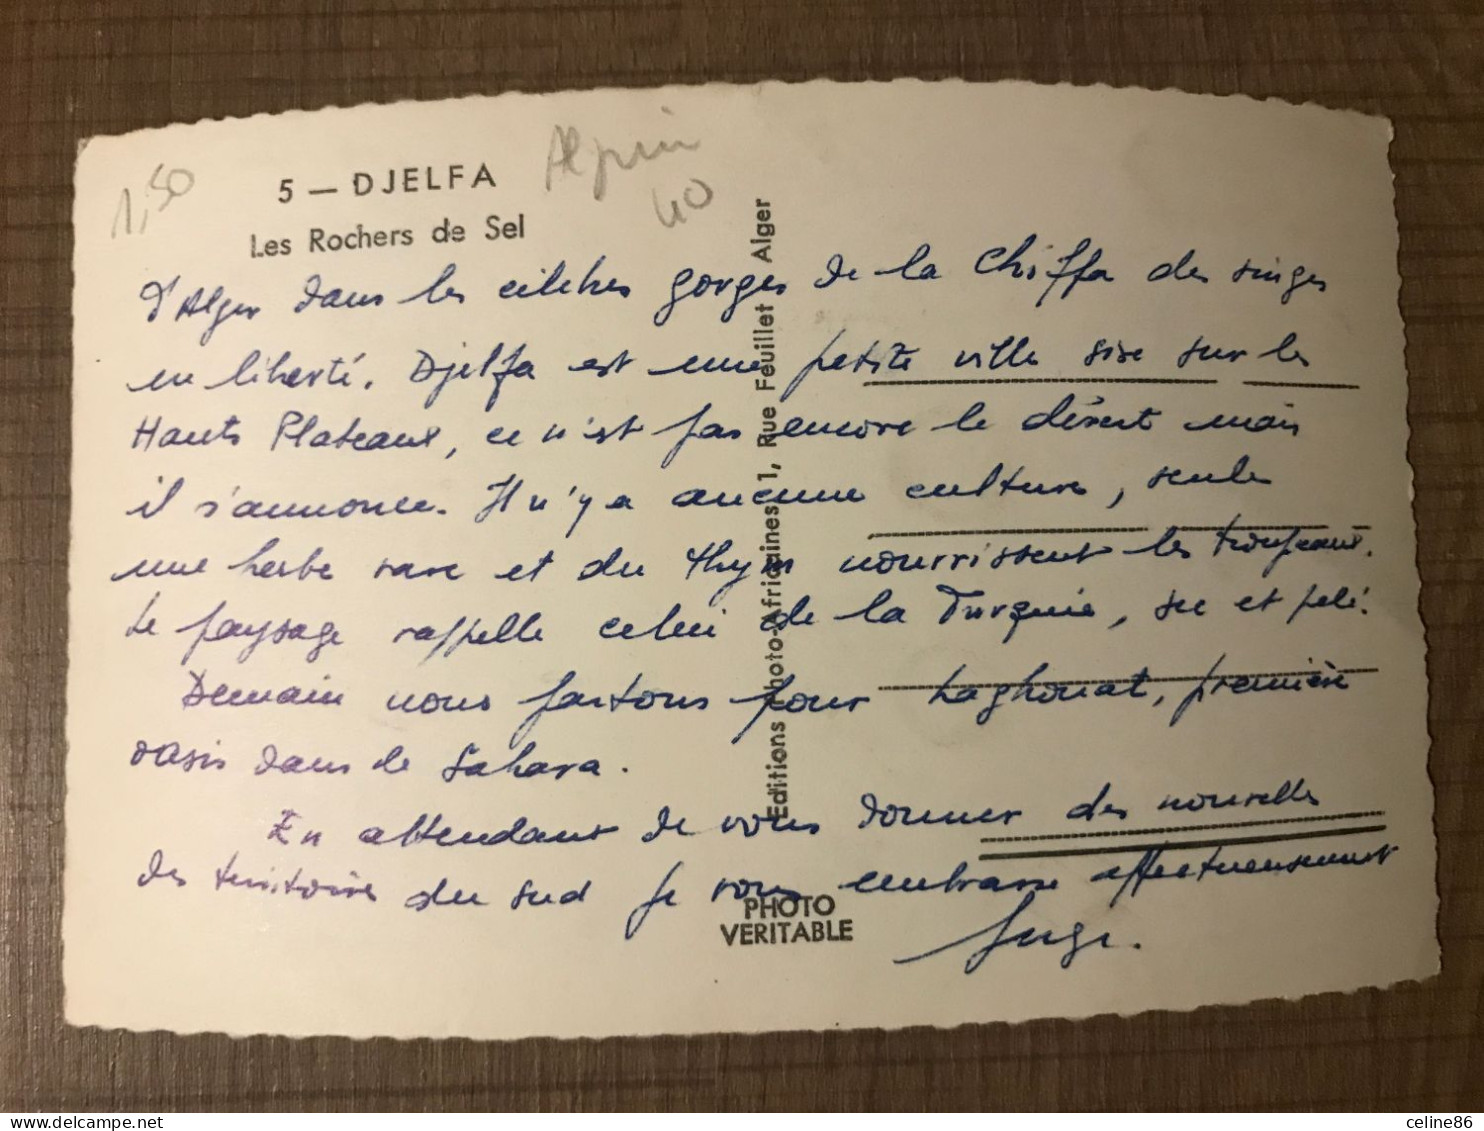 1,50
5 — DJELFA
Les Rochers de Sel
40
d'Alger dans les célèbres gorges de la Chiffa des singes
en liberté. Djelfa est une petite ville sise sur les
Hauts Plateaux, ce n'est pas encore le désert mais
il s'annonce. Il n'y a aucune culture, seule
une herbe rare et du thym nourrissent les troupeaux.
Le paysage rappelle celui de la Turquie, sec et pelé.
Demain nous partons pour Laghouat, première
oasis dans le Sahara.
En attendant de vous donner des nouvelles
des territoires du Sud je vous embrasse affectueusement
Editions Photo-Africaines 1, Rue Feuillet Alger
PHOTO
VERITABLE
delcampe.net
celine86